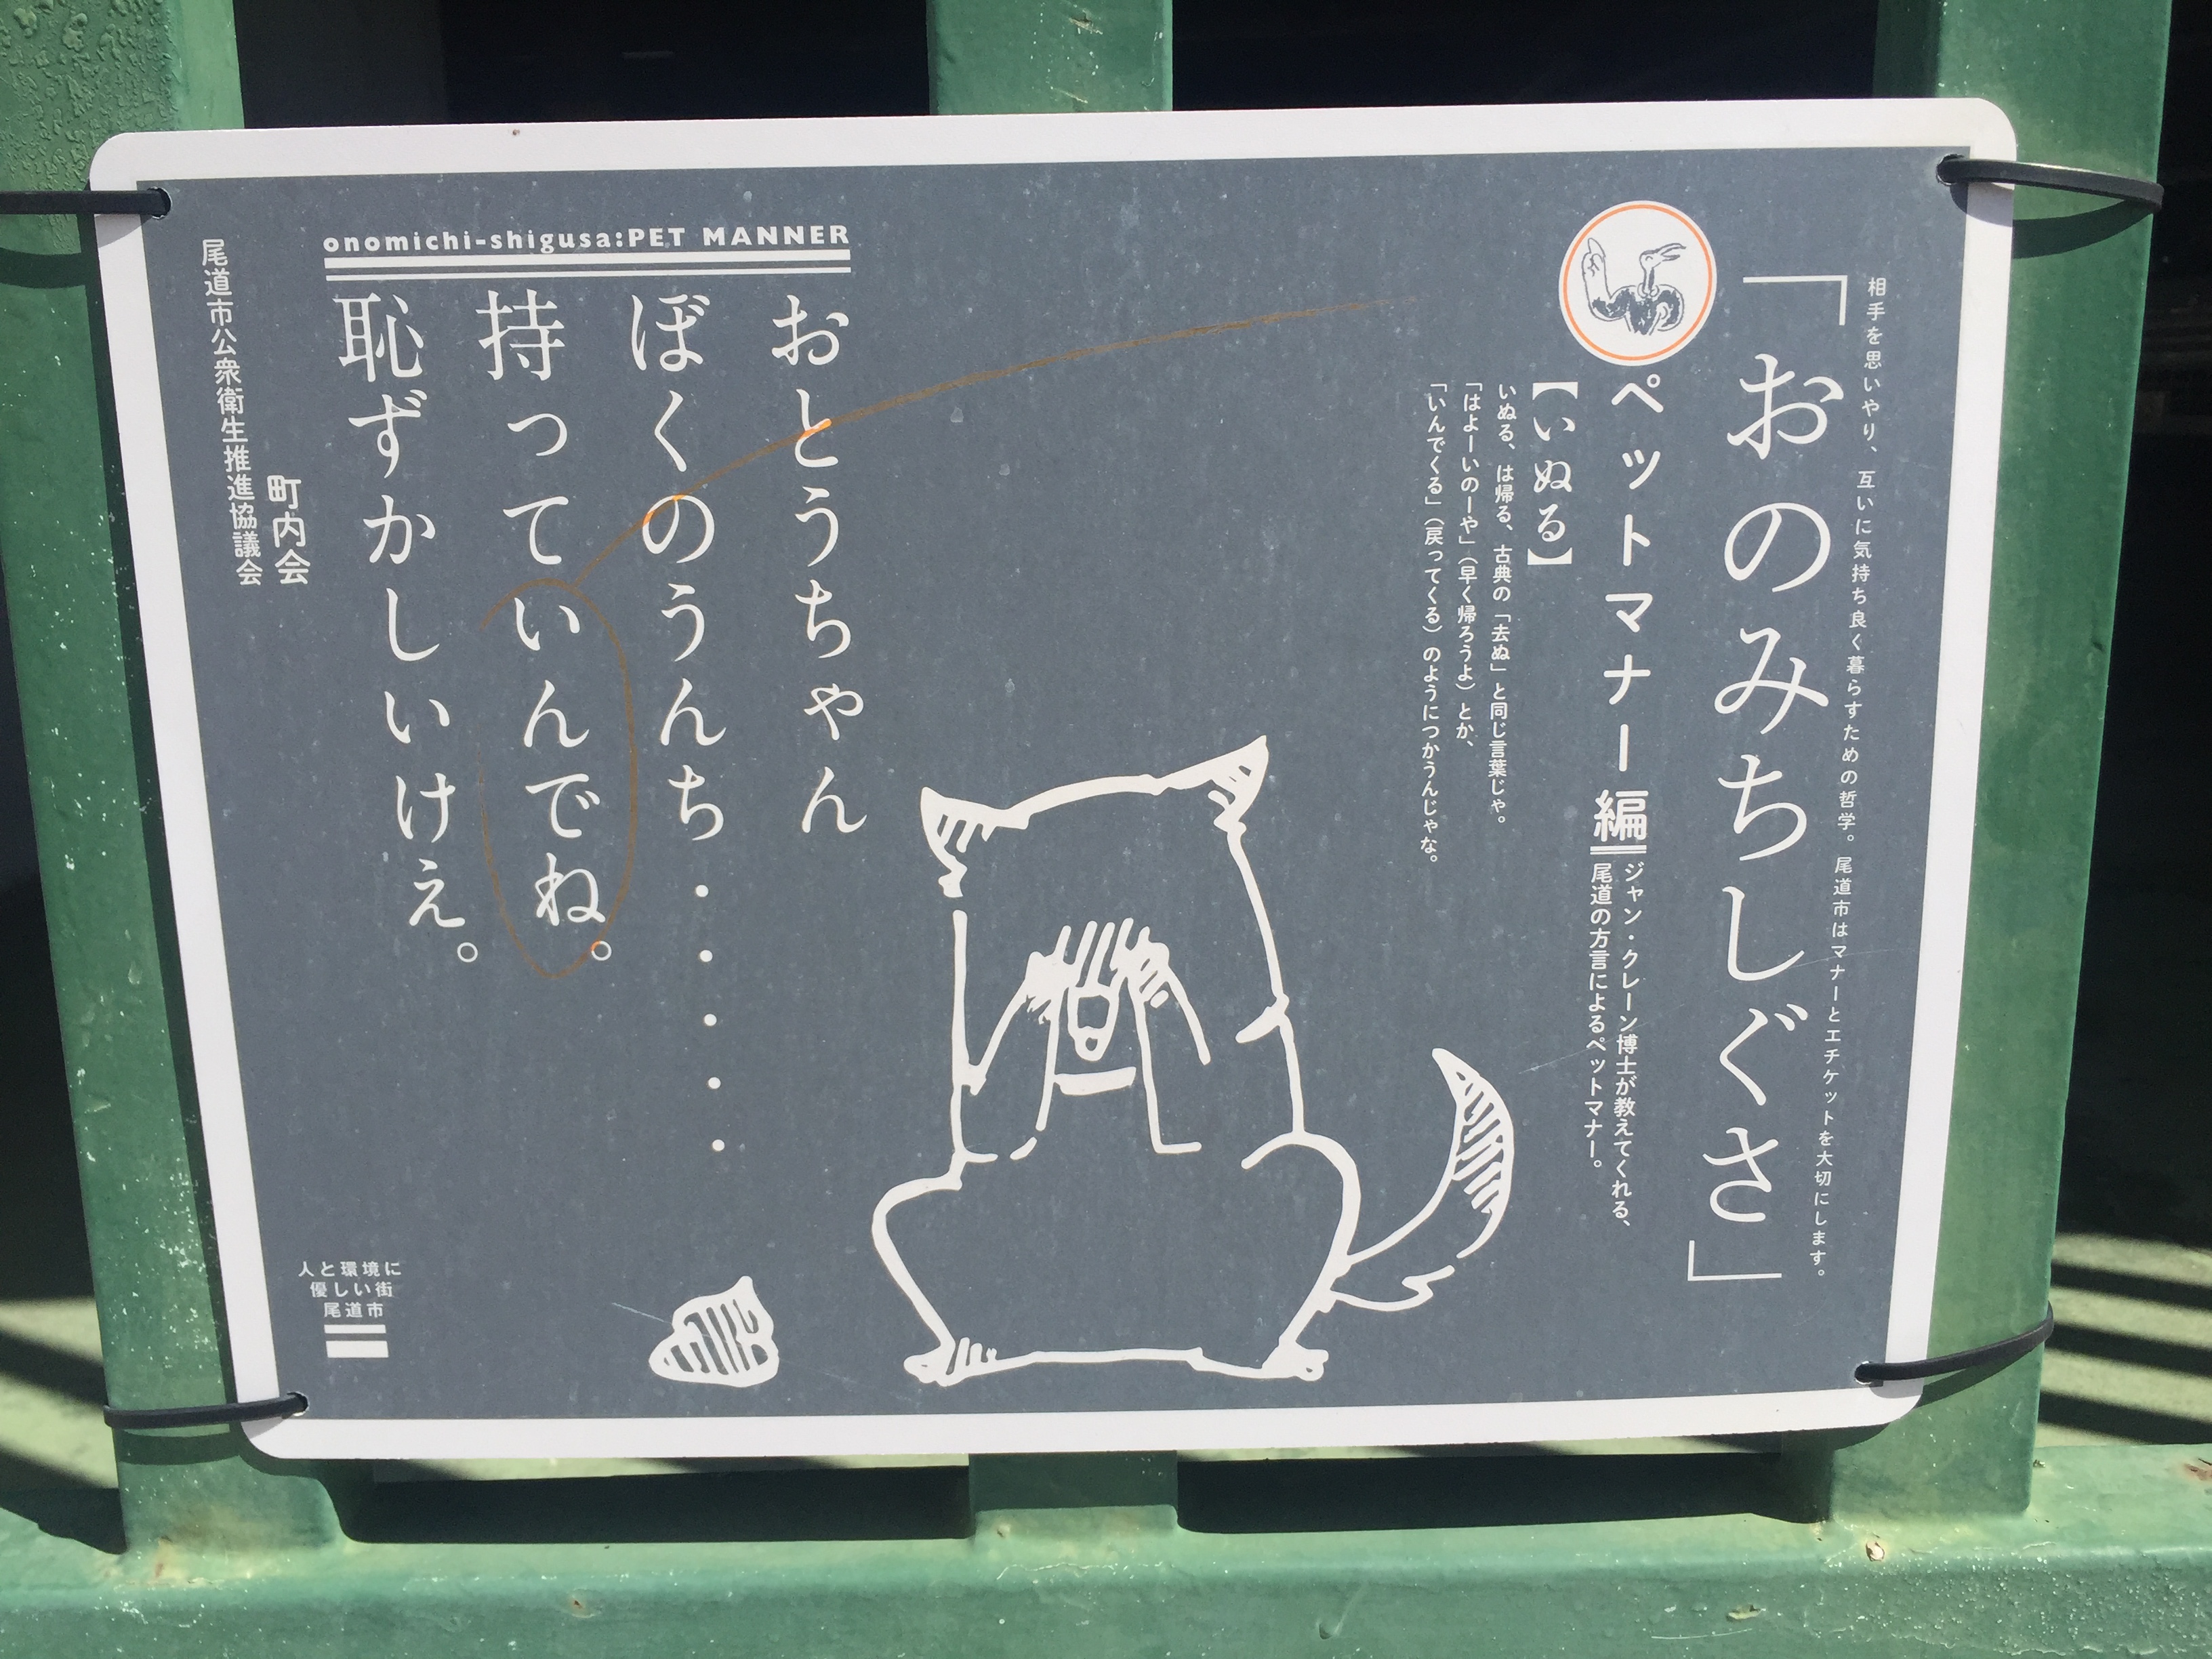 相手を思いやり、互いに気持ち良く暮らすための哲学。尾道市はマナーとエチケットを大切にします。
「おのみちしぐさ」
ペットマナー編
ジャン・クレーン博士が教えてくれる、
尾道の方言によるペットマナー。
【いぬる】
いぬる、は帰る、古典の「去ぬ」と同じ言葉じゃ。
「はよーいのーや」（早く帰ろうよ）とか、
「いんでくる」（戻ってくる）のようにつかうんじゃな。
onomichi-shigusa:PET MANNER
おとうちゃん
ぼくのうんち・・・・・
持っていんでね。
恥ずかしいけえ。
町内会
尾道市公衆衛生推進協議会
人と環境に
優しい街
尾道市